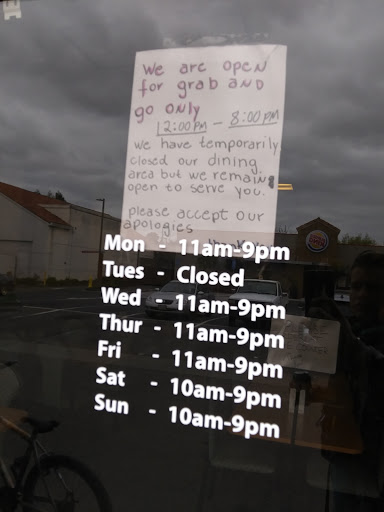 We are open
for grab AND
go only
12:00PM - 8:00PM
we have temporarily
closed our dining
area but we remain
open to serve you.
please accept our
apologies
Mon - 11am-9pm
Tues - Closed
Wed - 11am-9pm
Thur - 11am-9pm
Fri - 11am-9pm
Sat - 10am-9pm
Sun - 10am-9pm